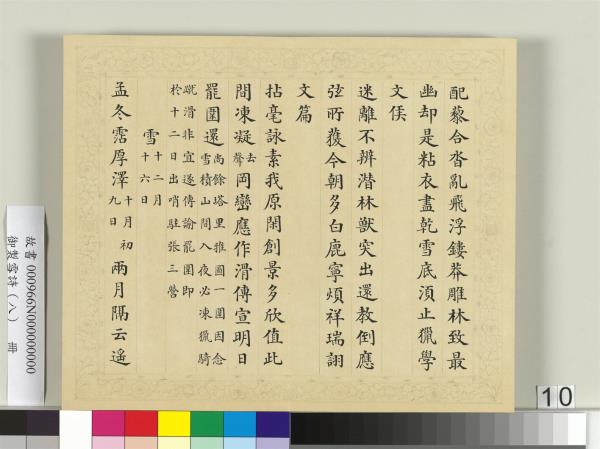 配藜合沓亂飛浮鏤莽雕林致最
幽却是粘衣盡乾雪底湏止獵學
文侯
迷離不辨潛林獸突出還教倒應
弦所獲今朝多白鹿寧煩祥瑞詡
文篇
拈毫詠素我原閑創景多欣值此
間凍凝去聲岡巒應作滑傳宣明日
罷圍還尚餘塔里雅圖一圍因念
雪積山間入夜必凍獵騎
蹴滑非宜遂傳諭罷圍即
於十二日出哨駐張三營
雪十二月
十六日
孟冬霑厚澤十月初
九日兩月隔云遙
故書 000966N000000000
御製雪詩(八) 冊
10